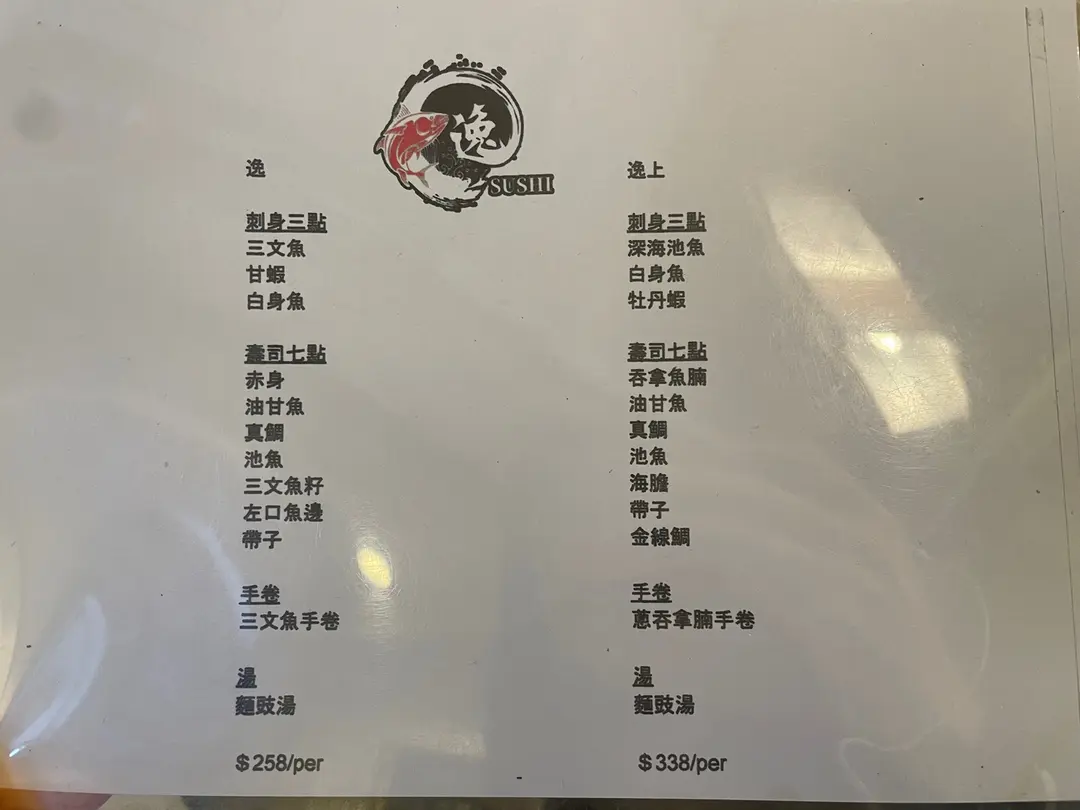 逸
SUSHI
逸
刺身三點
三文魚
甘蝦
白身魚
壽司七點
赤身
油甘魚
真鯛
池魚
三文魚籽
左口魚邊
帶子
手卷
三文魚手卷
湯
麵豉湯
$258/per
逸上
刺身三點
深海池魚
白身魚
牡丹蝦
壽司七點
吞拿魚腩
油甘魚
真鯛
池魚
海膽
帶子
金線鯛
手卷
蔥吞拿腩手卷
湯
麵豉湯
$338/per